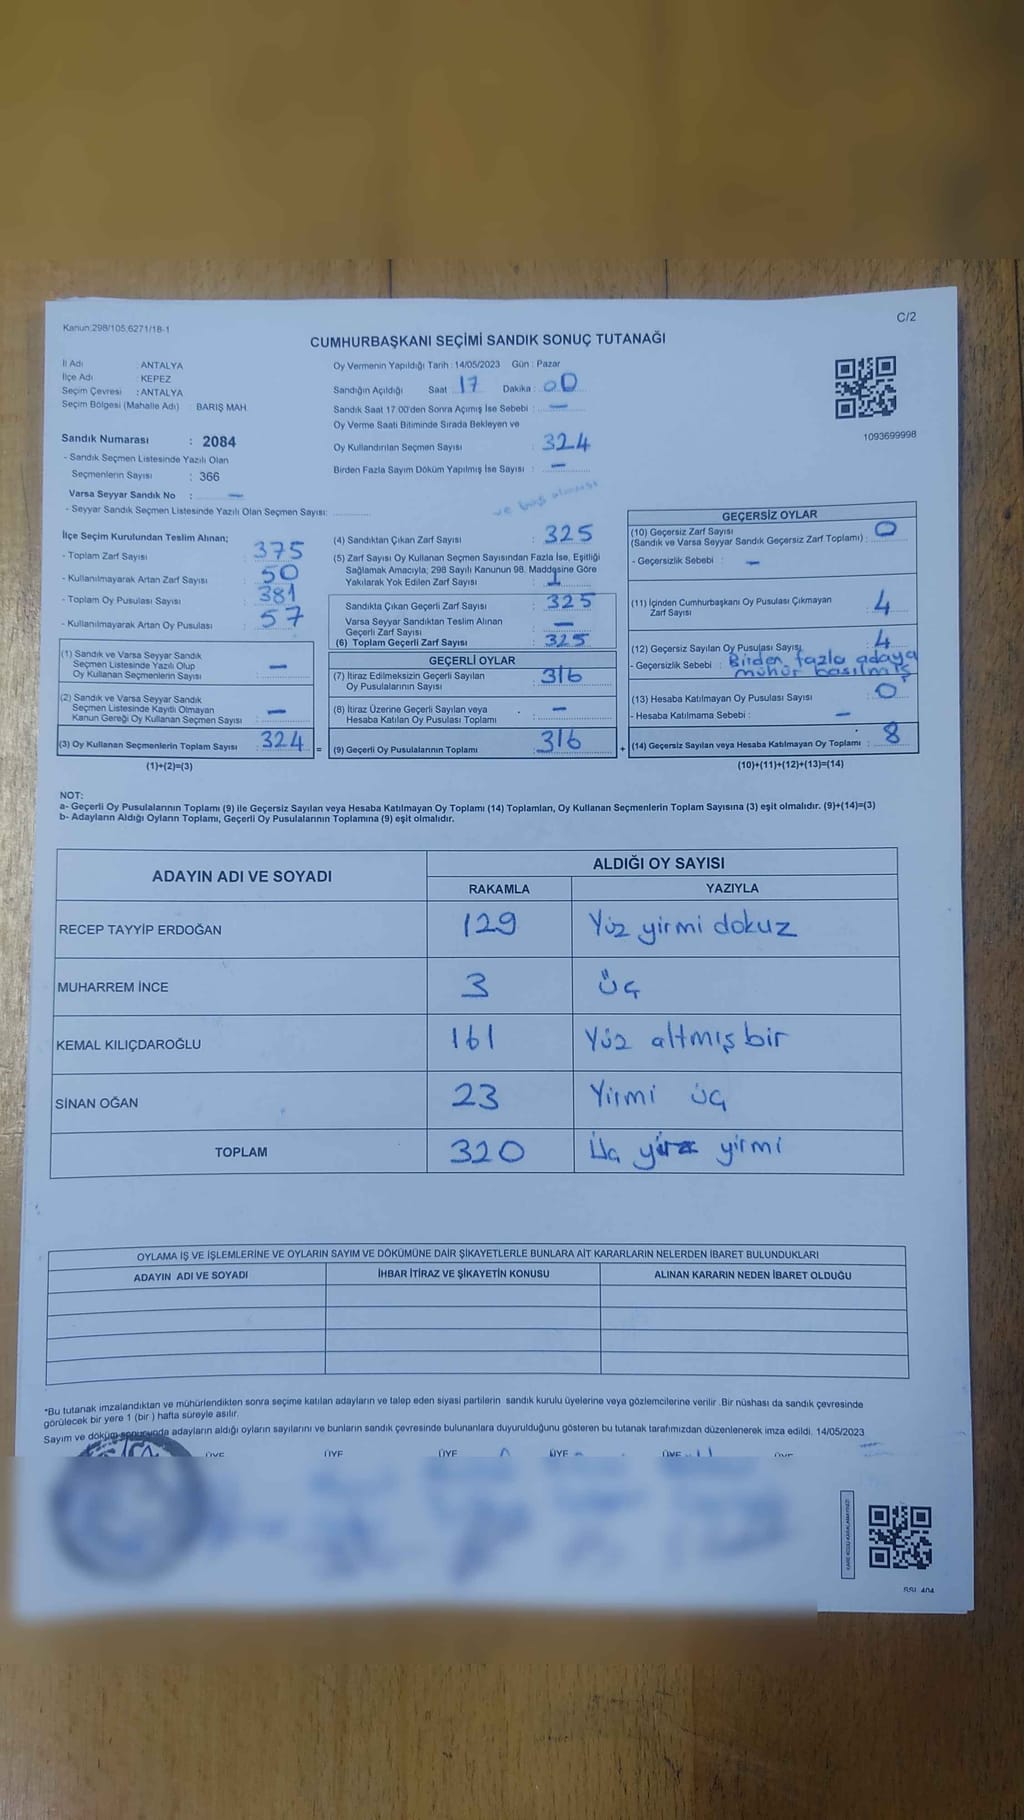 Kanun:298/105,6271/18-1
C/2
CUMHURBAŞKANI SEÇİMİ SANDIK SONUÇ TUTANAĞI
İl Adı ANTALYA
İlçe Adı : KEPEZ
Seçim Çevresi : ANTALYA
Seçim Bölgesi (Mahalle Adı) BARIŞ MAH
Sandık Numarası : 2084
- Sandık Seçmen Listesinde Yazılı Olan
Seçmenlerin Sayısı : 366
Varsa Seyyar Sandık No : —
- Seyyar Sandık Seçmen Listesinde Yazılı Olan Seçmen Sayısı:
Oy Vermenin Yapıldığı Tarih : 14/05/2023 Gün : Pazar
Sandığın Açıldığı Saat : 17 Dakika : 00
Sandık Saat 17:00'den Sonra Açımış İse Sebebi : —
Oy Verme Saati Bitiminde Sırada Bekleyen ve
Oy Kullandırılan Seçmen Sayısı : 324
Birden Fazla Sayım Döküm Yapılmış İse Sayısı : —
1093699998
İlçe Seçim Kurulundan Teslim Alınan;
- Toplam Zarf Sayısı : 375
- Kullanılmayarak Artan Zarf Sayısı : 50
- Toplam Oy Pusulası Sayısı : 381
- Kullanılmayarak Artan Oy Pusulası : 57
(1) Sandık ve Varsa Seyyar Sandık
Seçmen Listesinde Yazılı Olup
Oy Kullanan Seçmenlerin Sayısı : —
(2) Sandık ve Varsa Seyyar Sandık
Seçmen Listesinde Kayıtlı Olmayan
Kanun Gereği Oy Kullanan Seçmen Sayısı : —
(3) Oy Kullanan Seçmenlerin Toplam Sayısı : 324 =
(1)+(2)=(3)
ve boş olması
(4) Sandıktan Çıkan Zarf Sayısı : 325
(5) Zarf Sayısı Oy Kullanan Seçmen Sayısından Fazla İse, Eşitliği
Sağlamak Amacıyla; 298 Sayılı Kanunun 98. Maddesine Göre
Yakılarak Yok Edilen Zarf Sayısı : 1
Sandıkta Çıkan Geçerli Zarf Sayısı : 325
Varsa Seyyar Sandıktan Teslim Alınan
Geçerli Zarf Sayısı : —
(6) Toplam Geçerli Zarf Sayısı : 325
GEÇERLİ OYLAR
(7) İtiraz Edilmeksizin Geçerli Sayılan
Oy Pusulalarının Sayısı : 316
(8) İtiraz Üzerine Geçerli Sayılan veya
Hesaba Katılan Oy Pusulası Toplamı : —
(9) Geçerli Oy Pusulalarının Toplamı : 316 +
GEÇERSİZ OYLAR
(10) Geçersiz Zarf Sayısı
(Sandık ve Varsa Seyyar Sandık Geçersiz Zarf Toplamı) : 0
- Geçersizlik Sebebi : —
(11) İçinden Cumhurbaşkanı Oy Pusulası Çıkmayan
Zarf Sayısı : 4
(12) Geçersiz Sayılan Oy Pusulası Sayısı : 4
- Geçersizlik Sebebi : Birden fazla adaya
mühür basılmış
(13) Hesaba Katılmayan Oy Pusulası Sayısı : 0
- Hesaba Katılmama Sebebi : —
(14) Geçersiz Sayılan veya Hesaba Katılmayan Oy Toplamı : 8
(10)+(11)+(12)+(13)=(14)
NOT:
a- Geçerli Oy Pusulalarının Toplamı (9) ile Geçersiz Sayılan veya Hesaba Katılmayan Oy Toplamı (14) Toplamları, Oy Kullanan Seçmenlerin Toplam Sayısına (3) eşit olmalıdır. (9)+(14)=(3)
b- Adayların Aldığı Oyların Toplamı, Geçerli Oy Pusulalarının Toplamına (9) eşit olmalıdır.
ADAYIN ADI VE SOYADI ALDIĞI OY SAYISI
RAKAMLA YAZIYLA
RECEP TAYYİP ERDOĞAN 129 Yüz yirmi dokuz
MUHARREM İNCE 3 üç
KEMAL KILIÇDAROĞLU 161 Yüz altmış bir
SİNAN OĞAN 23 Yirmi üç
TOPLAM 320 Üç yüz yirmi
OYLAMA İŞ VE İŞLEMLERİNE VE OYLARIN SAYIM VE DÖKÜMÜNE DAİR ŞİKAYETLERLE BUNLARA AİT KARARLARIN NELERDEN İBARET BULUNDUKLARI
ADAYIN ADI VE SOYADI İHBAR İTİRAZ VE ŞİKAYETİN KONUSU ALINAN KARARIN NEDEN İBARET OLDUĞU
*Bu tutanak imzalandıktan ve mühürlendikten sonra seçime katılan adayların ve talep eden siyasi partilerin sandık kurulu üyelerine veya gözlemcilerine verilir .Bir nüshası da sandık çevresinde
görülecek bir yere 1 (bir ) hafta süreyle asılır.
Sayım ve döküm sonucunda adayların aldığı oyların sayılarını ve bunların sandık çevresinde bulunanlara duyurulduğunu gösteren bu tutanak tarafımızdan düzenlenerek imza edildi. 14/05/2023
ÜYE ÜYE ÜYE ÜYE ÜYE ÜYE